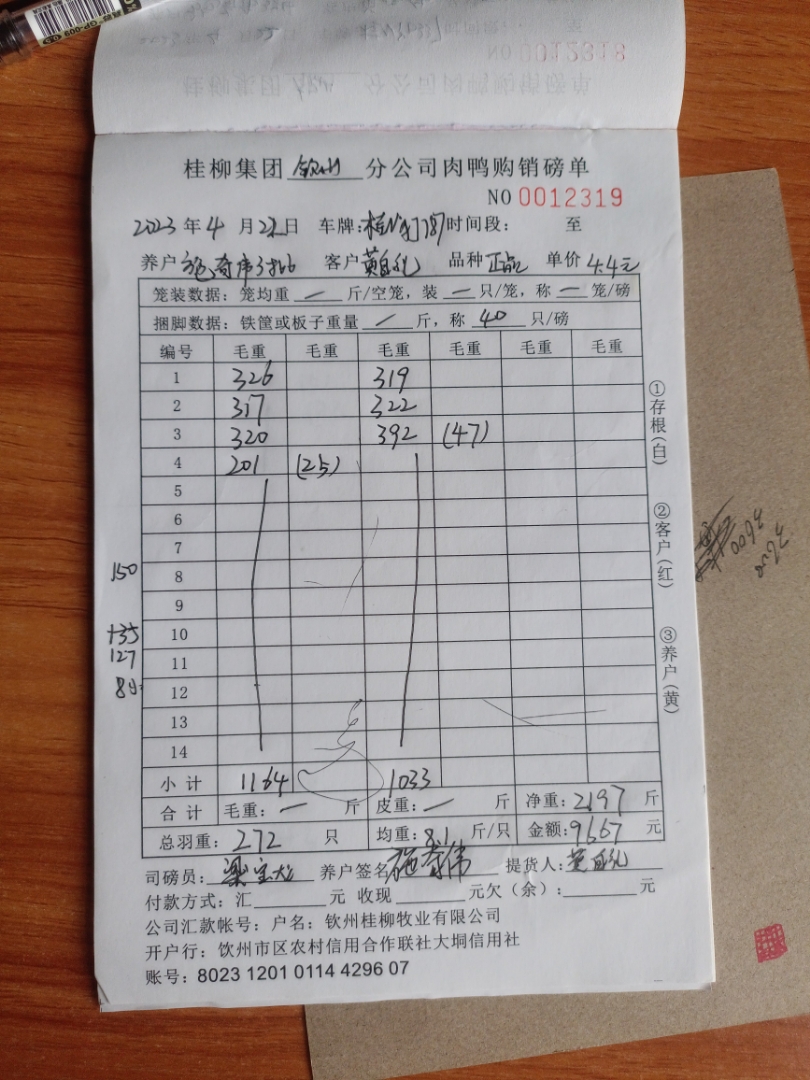 桂柳集团 钦州 分公司肉鸭购销磅单
NO 0012319
2023 年 4 月 22 日 车牌: 时间段: 至
养户 施奇伟 客户 黄自礼 品种 正品 单价 4.4元
笼装数据: 笼均重 — 斤/空笼, 装 — 只/笼, 称 — 笼/磅
捆脚数据: 铁筐或板子重量 — 斤, 称 40 只/磅
编号 毛重 毛重 毛重 毛重 毛重 毛重
1 326 319
2 317 322
3 320 392 (47)
4 201 (25)
5
6
7
8
9
10
11
12
13
14
小计 1164 1033
合计 毛重: — 斤 皮重: — 斤 净重: 2197 斤
总羽重: 272 只 均重: 8.1 斤/只 金额: 9667 元
司磅员: 养户签名 施奇伟 提货人: 黄自礼
付款方式: 汇 元 收现 元欠(余): 元
公司汇款帐号: 户名: 钦州桂柳牧业有限公司
开户行: 钦州市区农村信用合作联社大垌信用社
账号: 8023 1201 0114 4296 07
①存根(白)
②客户(红)
③养户(黄)
150
135
127
NO 0012318
GP-009